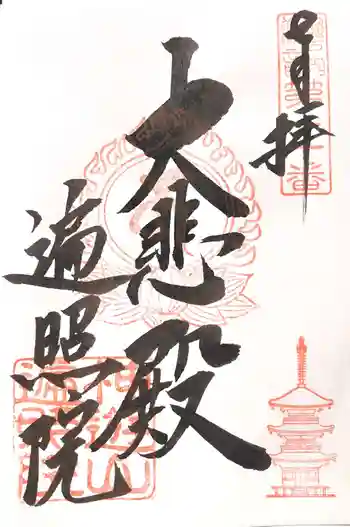 奉拝
大悲殿
遍照院